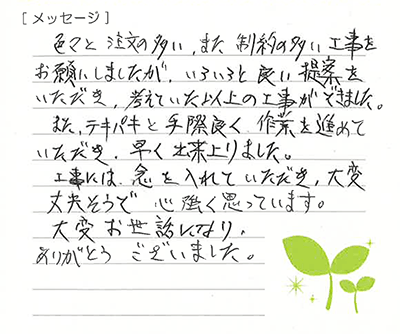 [メッセージ]
色々と注文の多い、また制約の多い工事を
お願いしましたが、いろいろと良い提案を
いただき、考えていた以上の工事ができました。
また、テキパキと手際良く作業を進めて
いただき、早く出来上りました。
工事には念を入れていただき、大変
丈夫そうで心強く思っています。
大変お世話になり、
ありがとうございました。